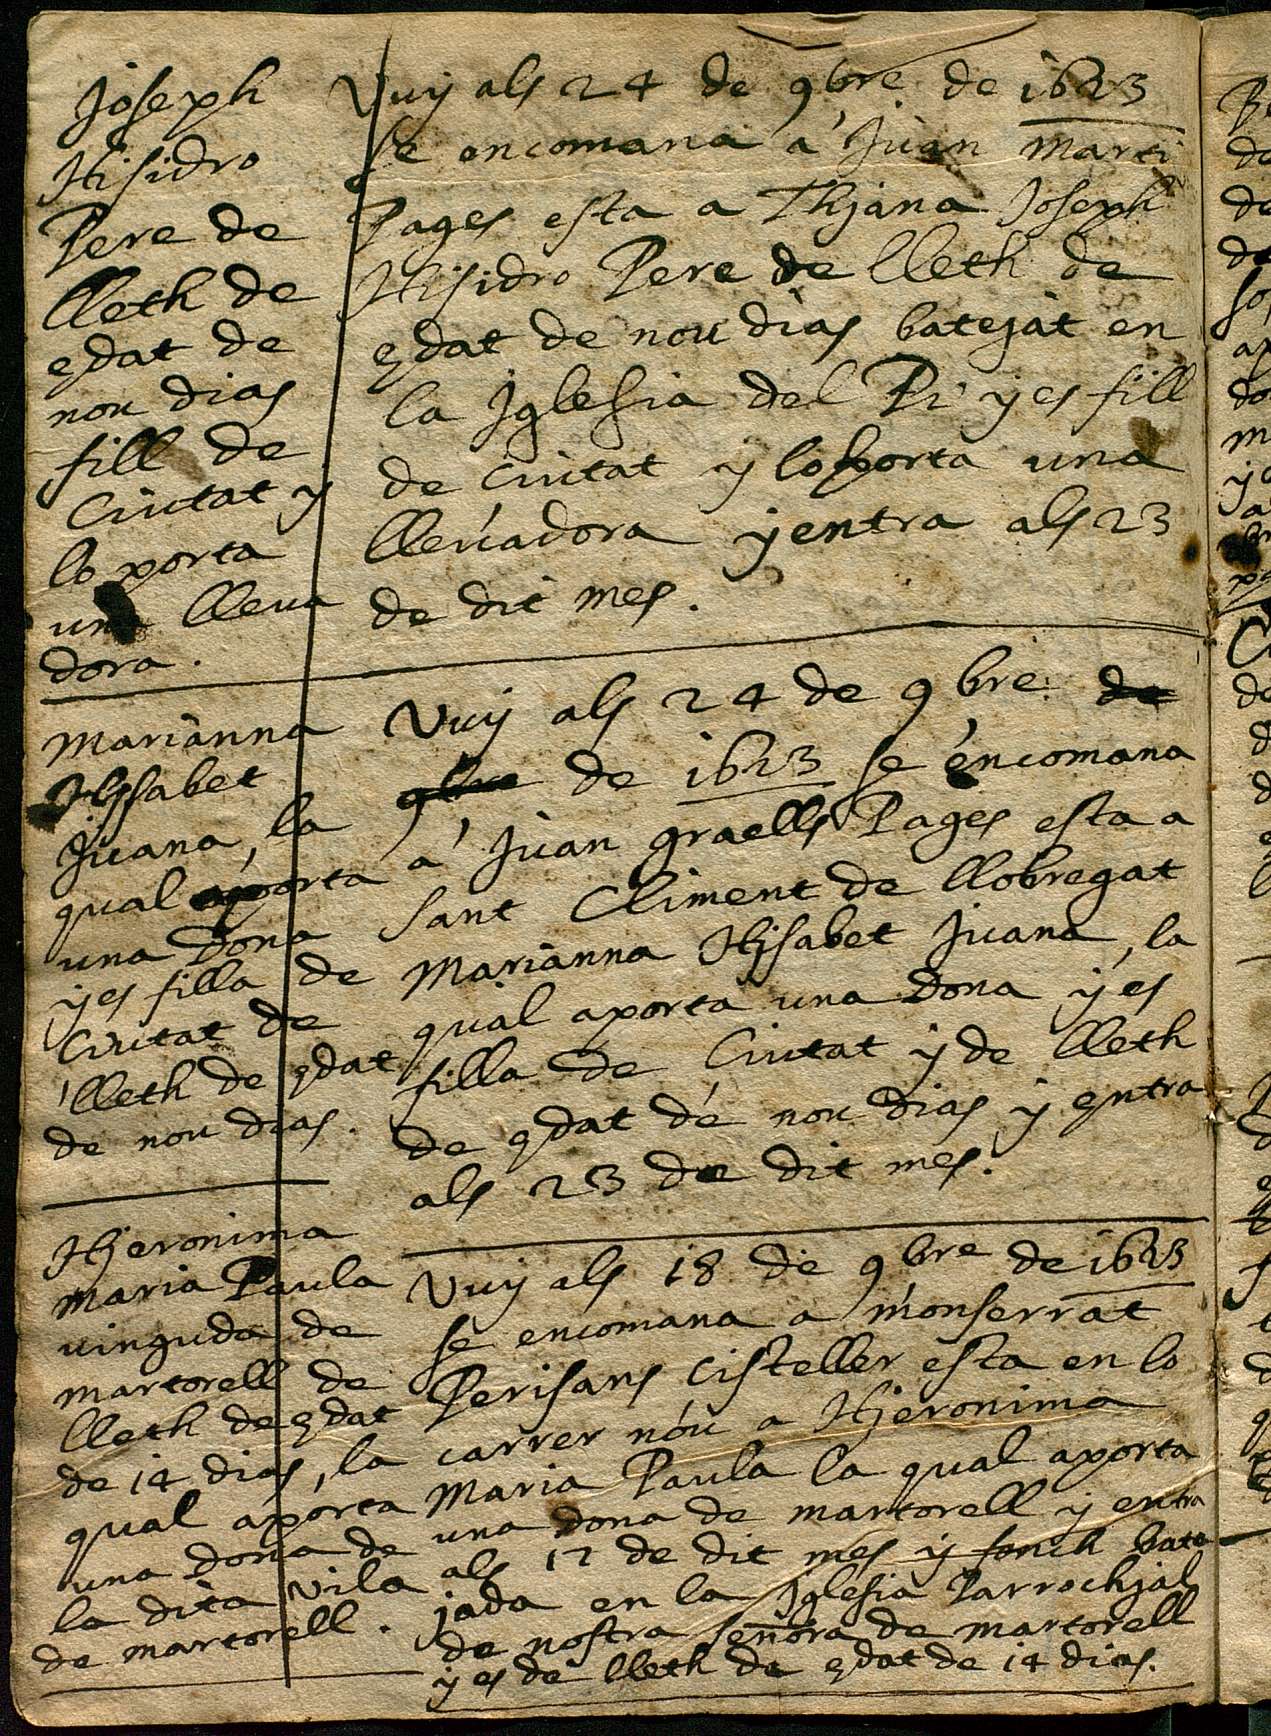 Joseph
Hisidro
Pere de
lleth de
edat de
nou dias
fill de
Ciutat y
lo porta
una lleua
dora.
Vuy als 24 de 9bre de 1623
se encomana a Juan Marti
Pages esta a Thjana Joseph
Hisidro Pere de lleth de
edat de nou dias batejat en
la Jglesia del Pi y es fill
de Ciutat y lo porta una
lleuadora y entra als 23
de dit mes.
Marianna
Hjsabet
Juana, la
qual aporta
una Dona
y es filla de
Ciutat de
lleth de edat
de nou dias.
Vuy als 24 de 9bre de
9bre de 1623 se encomana
a Juan graells Pages esta a
Sant Climent de llobregat
Marianna Hjsabet Juana, la
qual aporta una Dona y es
filla de Ciutat y de lleth
de edat de nou dias y entra
als 23 de dit mes.
Hjeronima
Maria Paula
vinguda de
martorell de
lleth de edat
de 14 dias, la
qual aporta
una dona de
la dita vila
de martorell.
Vuy als 18 de 9bre de 1623
se encomana a monserrat
Perisans Cisteller esta en lo
carrer nou a Hjeronima
Maria Paula la qual aporta
una dona de martorell y entra
als 17 de dit mes y fonch bate
jada en la Jglesia Parrochjal
de nostra señora de martorell
y es de lleth de edat de 14 dias.